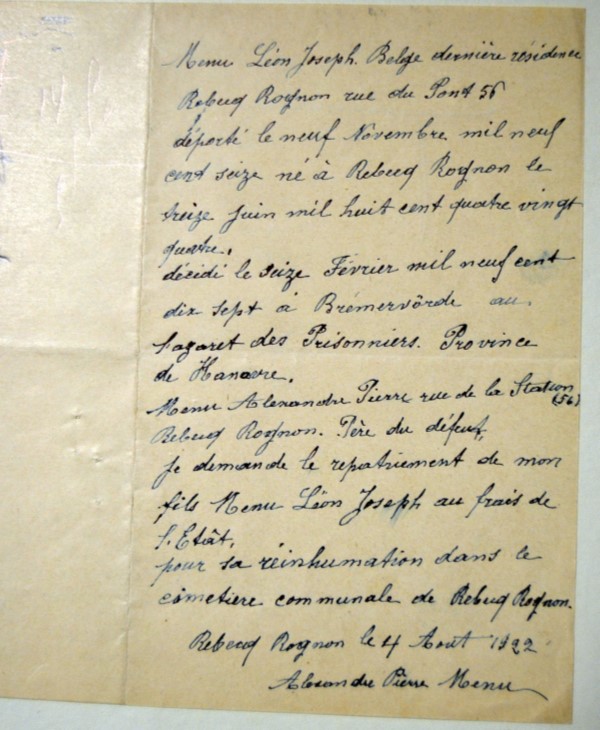 Menu Léon Joseph. Belge dernière résidence
Rebecq Rognon rue du Pont 56
déporté le neuf Novembre mil neuf
cent seize né à Rebecq Rognon le
treize juin mil huit cent quatre vingt
quatre.
décidi le seize Février mil neuf cent
dix sept à Brémervörde au.
Lazaret des Prisonniers. Province
de Hanovre.
Menu Alexandre Pierre rue de la Station
(56)
Rebecq Rognon. Père du défunt,
je demande le repatriement de mon
fils Menu Léon Joseph au frais de
l'Etât.
pour sa réinhumation dans le
cimetière communale de Rebecq Rognon.
Rebecq Rognon le 4 Aout 1922
Alexandre Pierre Menu